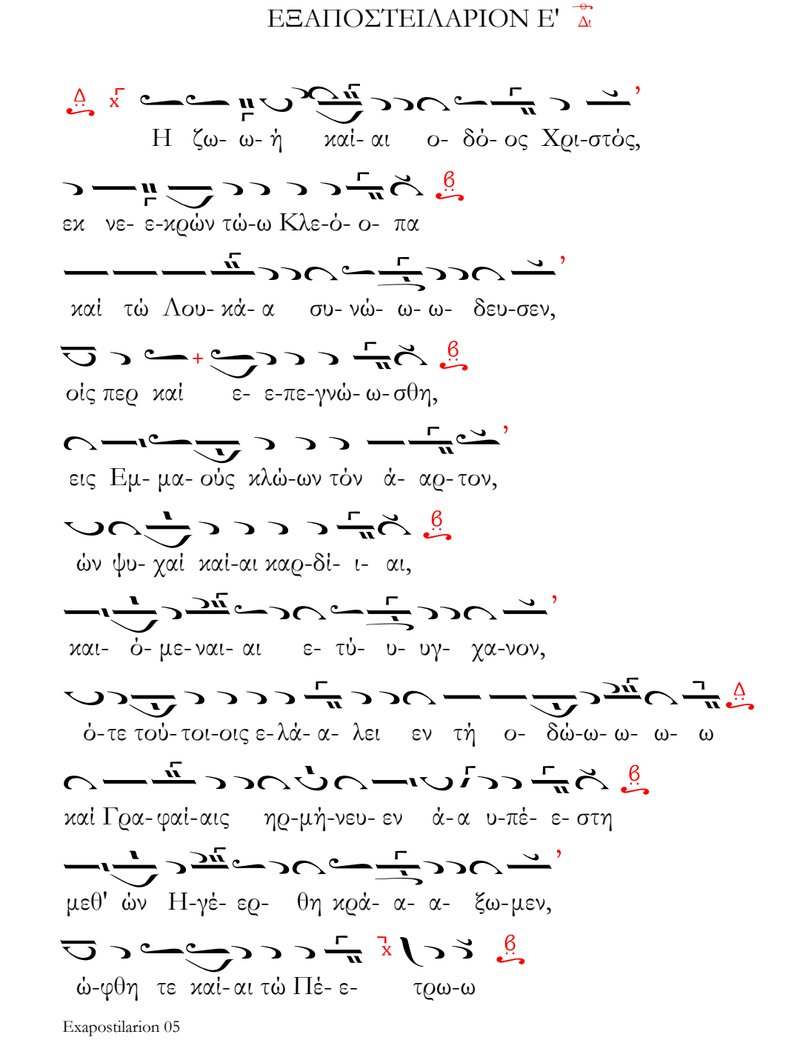 ΕΞΑΠΟΣΤΕΙΛΑΡΙΟΝ Ε' Δι
Η ζω- ω- ή καί- αι ο- δό- ος Χρι-στός,
εκ νε- ε-κρών τώ-ω Κλε-ό- ο- πα
καί τώ Λου- κά- α συ- νώ- ω- ω- δευ-σεν,
οίς περ καί ε- ε-πε-γνώ- ω- σθη,
εις Εμ- μα- ούς κλώ-ων τόν ά- αρ- τον,
ών ψυ- χαί καί-αι καρ-δί- ι- αι,
και- ό- με- ναι- αι ε- τύ- υ- υγ- χα-νον,
ό-τε τού- τοι-οις ε-λά- α- λει εν τή ο- δώ-ω- ω- ω- ω
καί Γρα- φαί-αις ηρ-μή-νευ- εν ά- α υ-πέ- ε- στη
μεθ' ών Η-γέ- ερ- θη κρά- α- α- ξω-μεν,
ώ-φθη τε καί- αι τώ Πέ- ε- τρω-ω
Exapostilarion 05